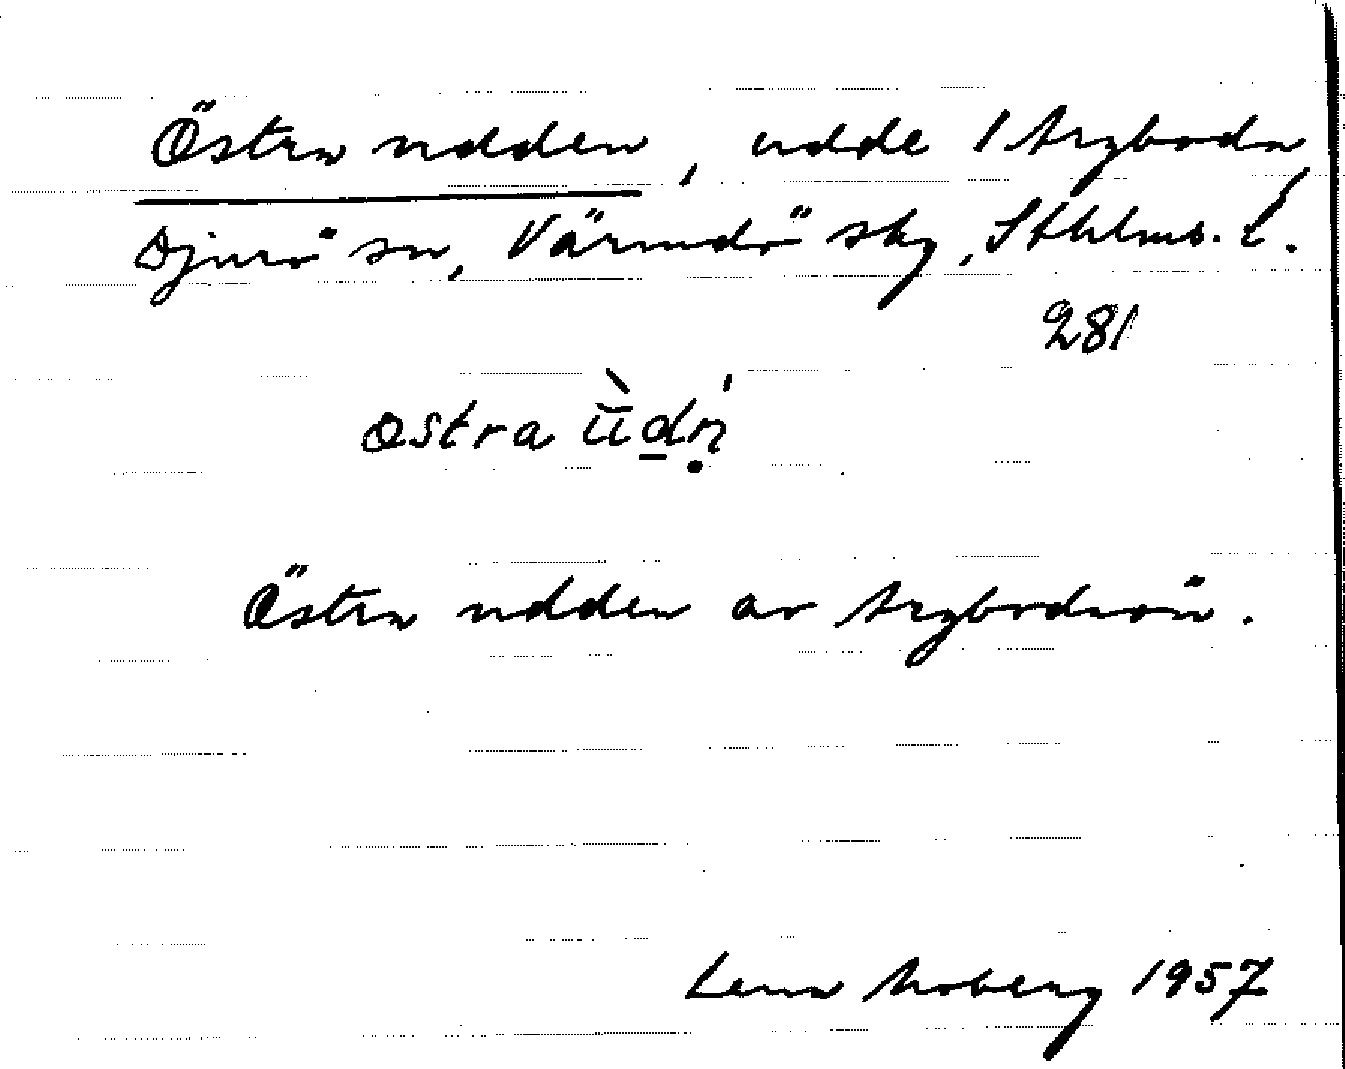 Östra udden, udde 1 Arybodn
Djurö sn, Värmdö skg, Sthlms. l.
281
östra ùdn
Östra udden av
Lena Moberg 1957